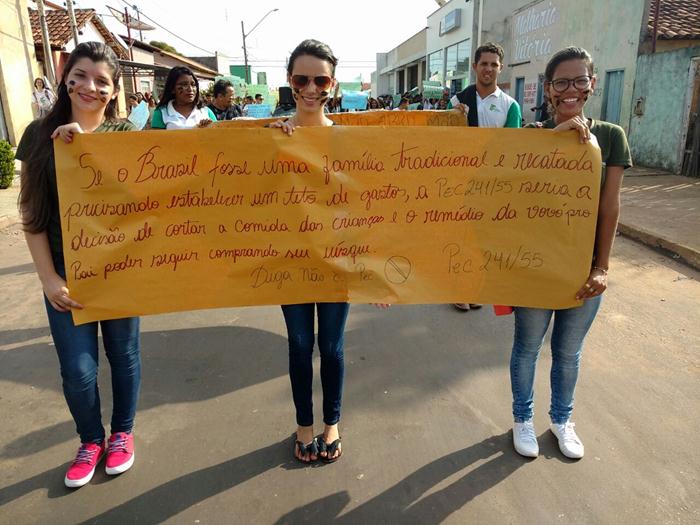 Malharia
Vitória
Se o Brasil fosse uma família tradicional e recatada
precisando estabelecer um teto de gastos, a PEC 241/55 seria a
decisão de cortar a comida das crianças e o remédio da vovó pro
Pai poder seguir comprando seu uísque.
Diga Não a Pec
PEC 241/55